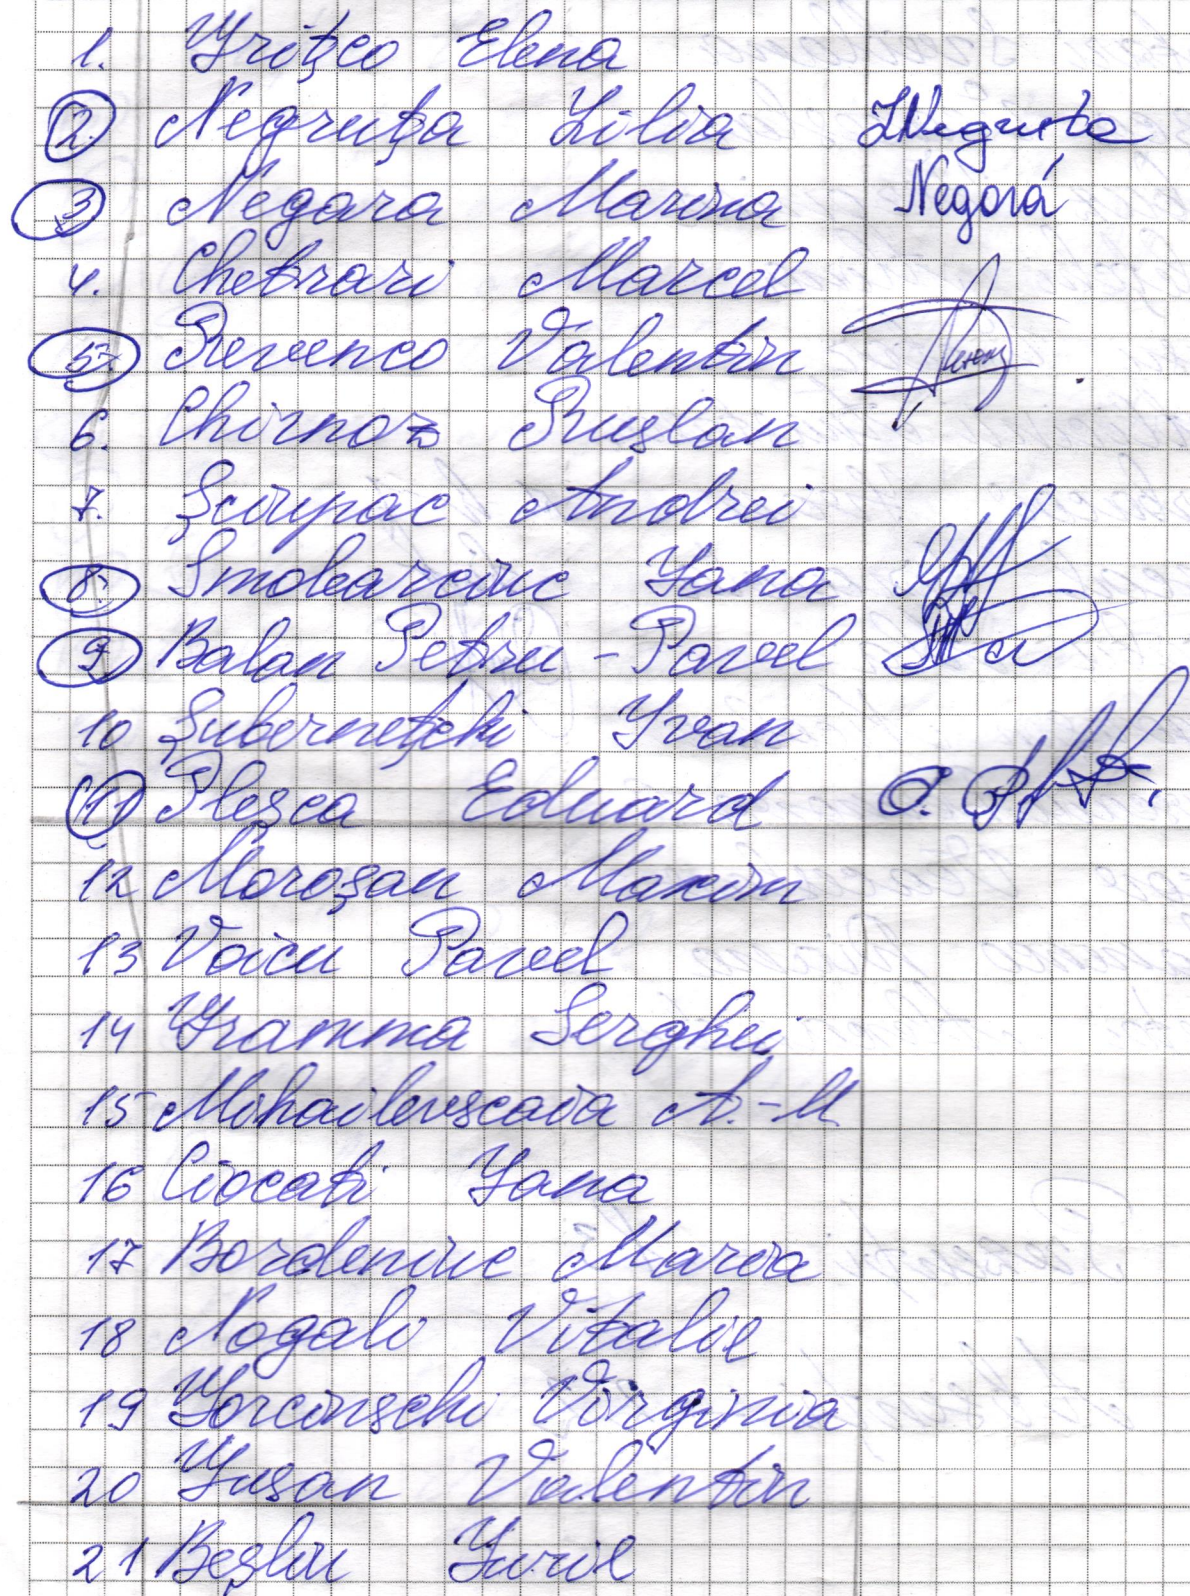 1. Grițco Elena
2. Negruța Lilia LNegruța
3 Negara Marina Negară
4. Chetrari Marcel
5. Revenco Valentin
6. Chirnoz Ruslan
7. Șciupac Andrei
8. Smolearciuc Iana
9 Balan Petru - Pavel
10 Șubernețchi Ivan
11 Pleșca Eduard
12 Moroșan Maxim
13 Voicu Pavel
14 Gramma Serghei
15 Mihailevscaia A.-M
16 Ciocati Iana
17 Bordeniuc Maria
18 Nogali Vitalie
19 Gorcinschi Virginia
20 Gușan Valentin
21 Beșliu Iurie